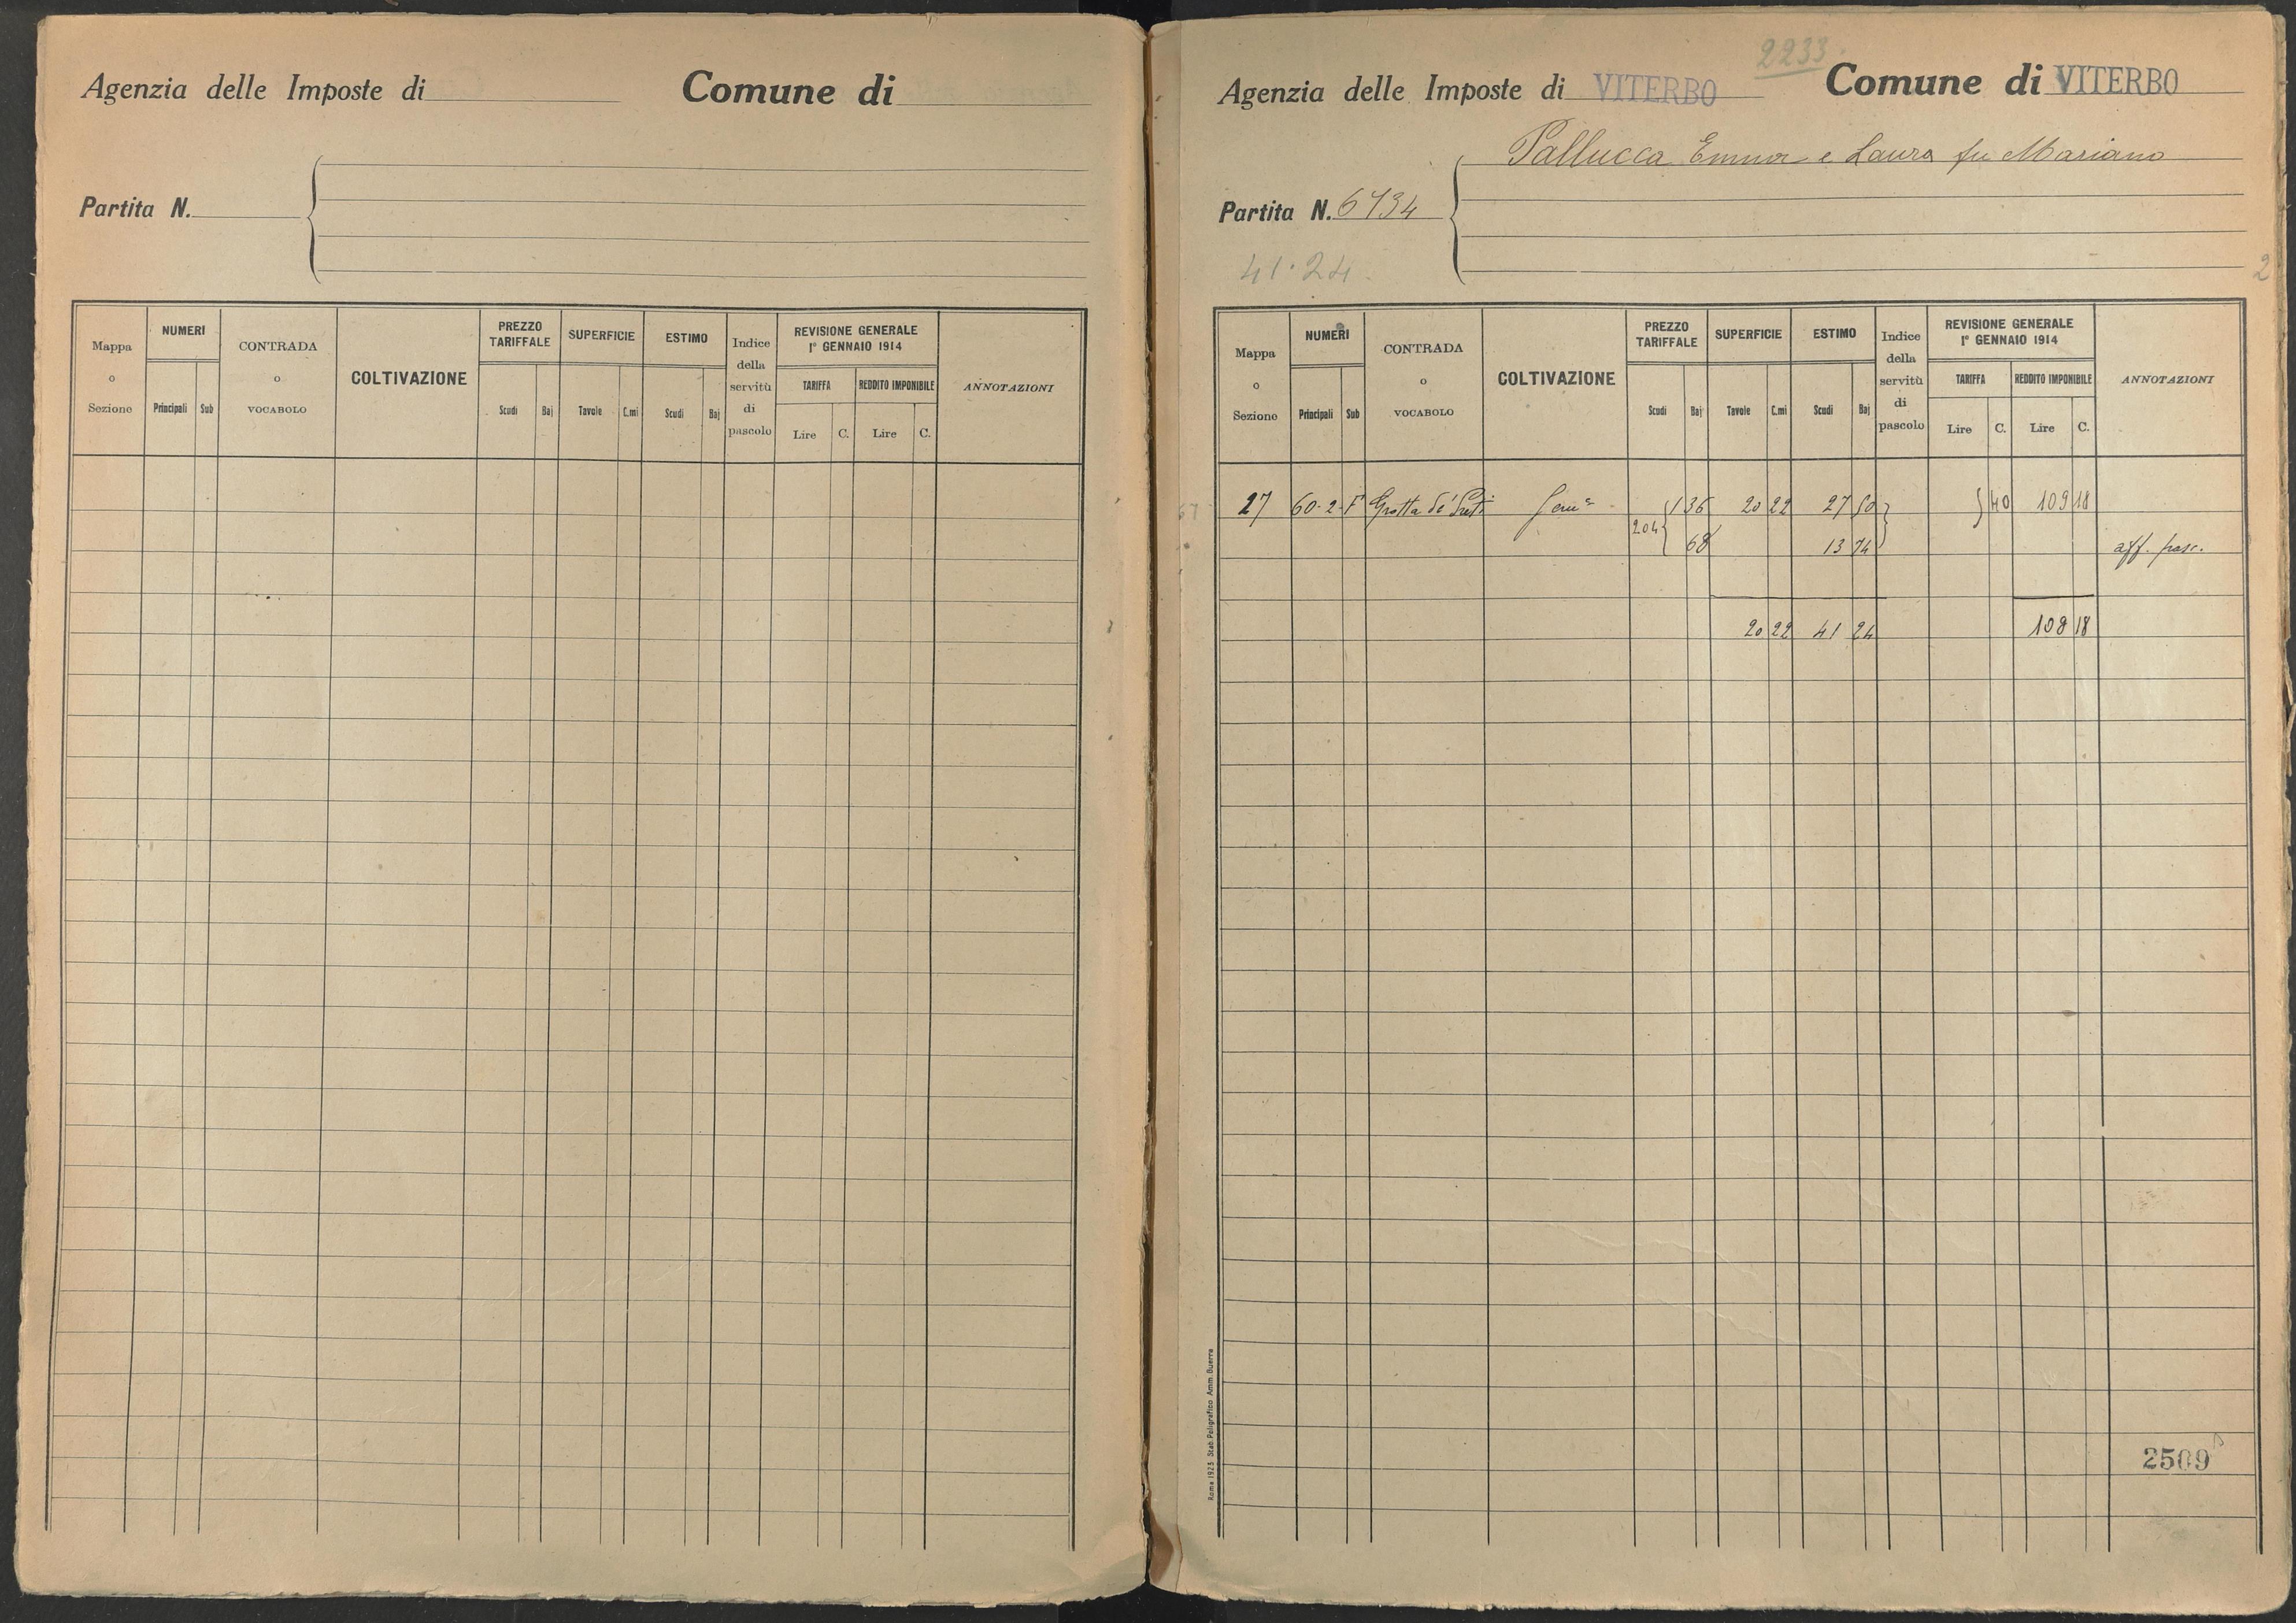 Agenzia delle Imposte di
Comune di
Partita N.
Mappa o Sezione
NUMERI
Principali Sub
CONTRADA o VOCABOLO
COLTIVAZIONE
PREZZO TARIFFALE
Scudi Baj
SUPERFICIE
Tavole C.mi
ESTIMO
Scudi Baj
Indice della servitù di pascolo
REVISIONE GENERALE
1° GENNAIO 1914
TARIFFA
Lire C.
REDDITO IMPONIBILE
Lire C.
ANNOTAZIONI
2233
Agenzia delle Imposte di VITERBO
Comune di VITERBO
Pallucca Emma e Laura fu Mariano
Partita N. 6734
41.24
2
Mappa o Sezione
NUMERI
Principali Sub
CONTRADA o VOCABOLO
COLTIVAZIONE
PREZZO TARIFFALE
Scudi Baj
SUPERFICIE
Tavole C.mi
ESTIMO
Scudi Baj
Indice della servitù di pascolo
REVISIONE GENERALE
1° GENNAIO 1914
TARIFFA
Lire C.
REDDITO IMPONIBILE
Lire C.
ANNOTAZIONI
27 60-2-F Grotta de' Preti 1 36 20 22 27 50 5 40 109 18
204 68 13 74 aff. pasc.
20 22 41 24 109 18
Roma 1923 Stab. Poligrafico Amm. Guerra
2509